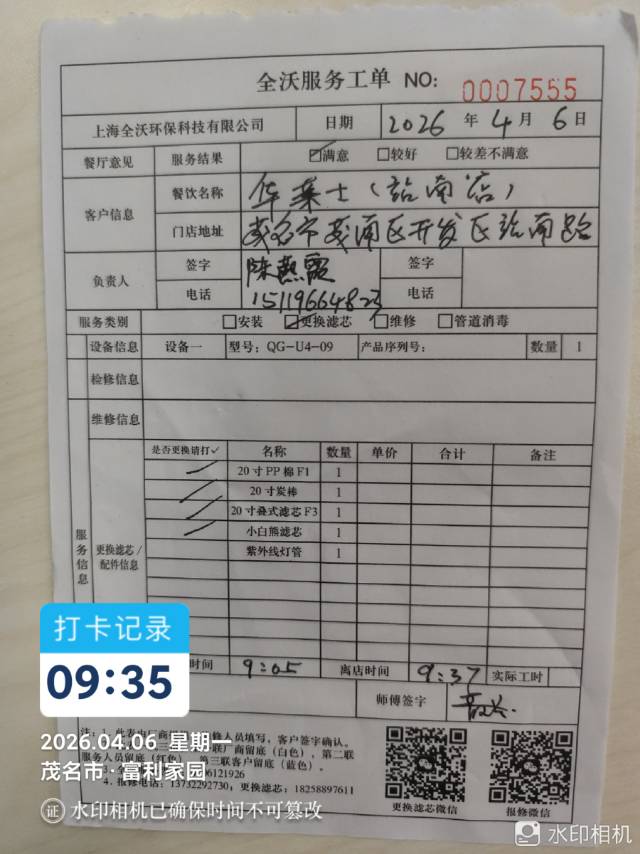 全沃服务工单 NO: 0007555
上海全沃环保科技有限公司 日期 2026 年 4 月 6 日
餐厅意见 服务结果 ☑满意 □较好 □较差不满意
客户信息 餐饮名称 华莱士(站南店)
门店地址 茂名市茂南区开发区站南路
负责人 签字 陈燕霞 签字
电话 电话
服务类别 □安装 ☑更换滤芯 □维修 □管道消毒
设备信息 设备一 型号: QG-U4-09 产品序列号: 数量 1
检修信息
维修信息
服务信息 更换滤芯/配件信息 是否更换请打✓ 名称 数量 单价 合计 备注
✓ 20寸PP棉F1 1
✓ 20寸炭棒 1
✓ 20寸叠式滤芯F3 1
✓ 小白熊滤芯 1
紫外线灯管 1
时间 9:05 离店时间 9:37 实际工时
师傅签字
注: 1. 此表由厂商 修人员填写, 客户签字确认。
联厂商留底(白色), 第二联
服务人员留底(红色) 第三联客户留底(蓝色)。
6121926
4. 报修电话: 13732292730; 更换滤芯: 18258897611
更换滤芯微信 报修微信
打卡记录
09:35
2026.04.06 星期一
茂名市·富利家园
证 水印相机已确保时间不可篡改
水印相机